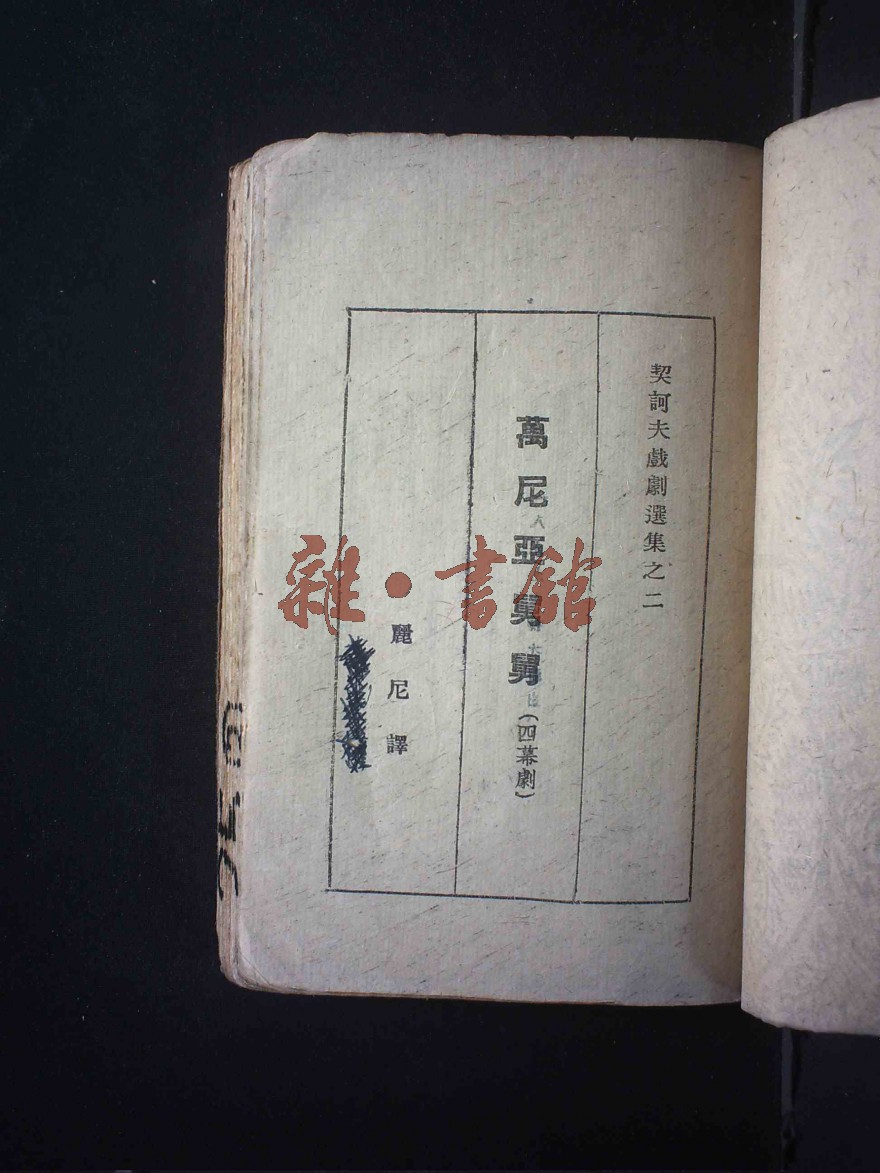 契訶夫戲劇選集之二
萬尼亞舅舅(四幕劇)
麗尼譯
雜·書館